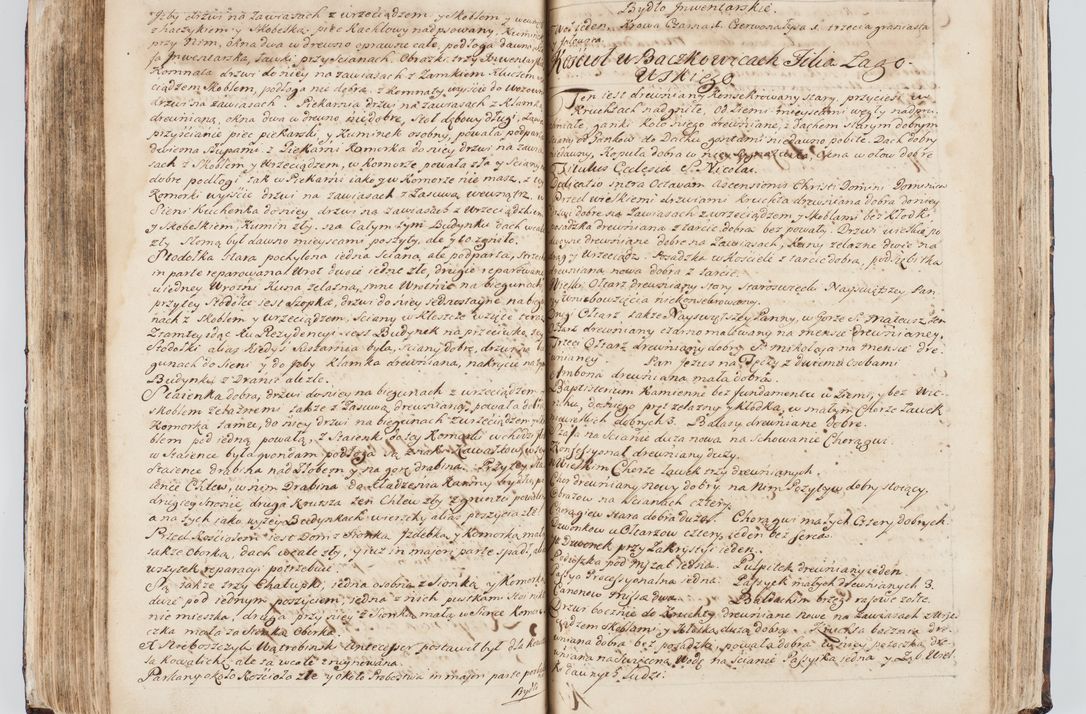 Izby drzwi na zawiasach z wrzeciądzem, y skoblem y wewnątrz
z haczykiem y Skobelką. piec kachlowy nadpsowany, Kumin
przy nim, okna dwa w drewno oprawne całe, podłoga dawna,
Inwentarska, Ławki przy scianach. Obrazki trzy Inwentarskie
Komnata drzwi do niey na zawiasach z Zamkiem Kluczem
ciądzem Skoblem, podłoga nie dobra. z komnaty wyiście do Wozowni
drzwi na zawiasach. Piekarnia drzwi na zawiasach z Klamką
drewnianą, okna dwa w drewno niedobre, Stoł dębowy długi,
przy ścianie piec piekarski, y Kuminek osobny, powała podparta
dwiema słupami. z Piekarni Komorka do niey, drzwi na zawia
sach z Skoblem y wrzeciądzem, w komorze powała zła y sciany
dobre podłogi tak w Piekarni iako y w Komorze nie masz, z tey
Komorki wyiście drzwi na zawiasach z Zasuwą wewnątrz. w
Sieni Kuchenka do niey, drzwi na zawiasach z wrzeciądzem
y Skobelkiem, Kumin zły. na Całym tym Budynku dach wcale
zły, Słomą był dawno mieyscami poszyty, ale y to zgniłe.
Stodołka Stara, pochylona iedna sciana, ale podparta,
in parte reparowana. Wrot dwoie iedne złe, drugie reparowane
u iedney Wrotni Kuna żelazna, inne Wrotnie na biegunach
przy tey Stodołce iest Szopka, drzwi do niey iednostayne na biegu
nach z Skoblem y wrzeciądzem, sciany w Kleszcze wzięte
Ztamtąd idąc ku Rezydencyi iest Budynek na przeciwko
Stodołki alias kiedyś Suszarnia była, sciany dobre, drzwi na bie
gunach do Sieni y do Izby Klamka drewniana, nakrycie na tym
Budynku z Dranic ale złe.
Staienka dobra, drzwi do niey na biegunach z wrzeciądzem
skoblem żelaznemi także z Zasuwą drewnianą, powała dobra
Komorka tamże, do niey drzwi na biegunach z wrzeciądzem y sko
blem pod iedną powałą, z Staienki do tey Komorki wchodzi
w Staience była gontami podłoga są znaki Kawałkow
Staience drabina nad Słobem, y na gorę drabina. Przy tey Sta
ience Chlew, w nim Drabina do
drugiey stronie, druga krowsza ten Chlew zły zgniły powała
a na tych iako wyżey Budynkach wierzchy alias poszycia złe
Przed Kosciołem iest Dom: Sionka, Izdebka, y Komorka mała
także Oborka, dach wcale zły, y iuż in majori parte spadł, a to
wszystek reparacyi potrzebuie.
Są także trzy Chałupki, iedna osobna z Sionką y Komorką,
dwie pod iednym poszyciem, iedna z nich pustkami stoi nikt
nie mieszka, druga przy niey z Sionką małą, w Sience Komor
czka mała za Sionką Oborka.
X Strzeboszczyk Wątrobinsk Antecessor postawił był dla Kowa
la kowalichę, ale ta wcale zrujnowana.
Parkany około Kościoła złe y około Probostwa in majori parte
Bydło
Bydło Inwentarskie.
Woł jeden. Krowa Czarna 1. Czerwona łysa 1. trzecia graniasta
y Jałowica.
Kościoł w Baczkowicach Filia Łago-
wskiego.
Ten iest drewniany Konsekrowany stary, przyciesi w
Kruchtach nadgniłe, od ziemi mieyscami węgły nadpru
chniałe, ganki koło niego drewniane, z dachem starym dobrym
sciany od Gankow do Dachu gontami niedawno pobite. Dach dobry
niedawny, Kopuła dobra w niey sygnaturka, okna w ołow dobre
Titulus Ecclesiæ S. Nicolai.
Dedicatio intra Octavam Ascensionis Christi Domini Dominica
Przed wielkiemi drzwiami kruchta drewniana dobra do niey
drzwi dobre na Zawiasach z wrzeciądzem y skoblami bez Kłodki
posadzka drewniana z tarcic dobra, bez powały. Drzwi wielkie po
dwoyne drewniane dobre na Zawiasach, Kuny żelazne dwie na
drągi y Wrzeciądz. Posadzka w kościele z tarcic dobra, podniebitka
drewniana nowa dobra z tarcic.
Wielki Ołtarz drewniany stary Staroswiecki Nayświętszey Pan
ny wniebowzięcia niekonsekrowany.
Drugi Ołtarz także Nayświętszey Panny, w gorze S. Mateusz, ten
Ołtarz drewniany czarno malowany na mensie drewnianey.
Trzeci Ołtarz drewniany dobry S. Mikołaja na mensie dre
wnianey. Pan Jezus na Tęczy z dwiema Osobami
Ambona drewniana mała dobra.
Baptisterium Kamienne bez fundamentu w Ziemi, y bez Wie
rzchu, do niego pręt żelazny y kłodka, w małym Chorze Ławek
niewielkich dobrych 3. Balasy drewniane dobre.
Szafa na scianie duża nowa na Schowanie Chorągwi.
Konfessyonał drewniany duży.
W wielkim Chorze Ławek trzy drewnianych.
Chor drewniany nowy dobry na nim Pozytyw dobry stoiący,
Obrazow na scianach cztery.
Chorągiew stara dobra duża 1. Chorągwi małych Cztery dobrych.
Dzwonkow u Ołtarzow cztery, ieden bez serca.
Dzwonek przy Zakrystyi ieden.
Poduszka pod mszał iedna. Pulpitek drewniany ieden
Passya Processyonalna iedna. Passyek małych drewnianych 3.
Canonow Missæ dwa. Baldachim brzeg rasowe żołte.
Drzwi bocznie do Kruchty drewniane nowe na Zawiasach z Wrze
ciądzem Skoblami y Kłodką dużą dobrą. Kruchta boczna dre
wniana dobra bez posadzki, powała dobra, w ktorey beczka dre
wniana na Swięconą Wodę, na scianie Passyika iedna, y Lib. Wiel
dawnych Ludzi.